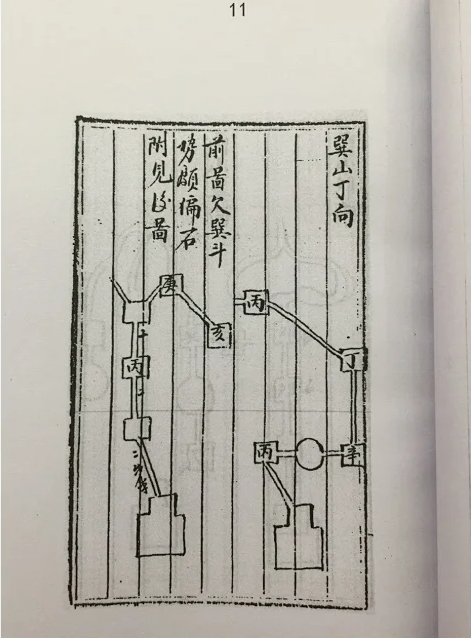 11
巽山丁向
前啚欠巽斗
势頗偏石
附見後啚
丙
丁
辛
丙
庚
亥
丙